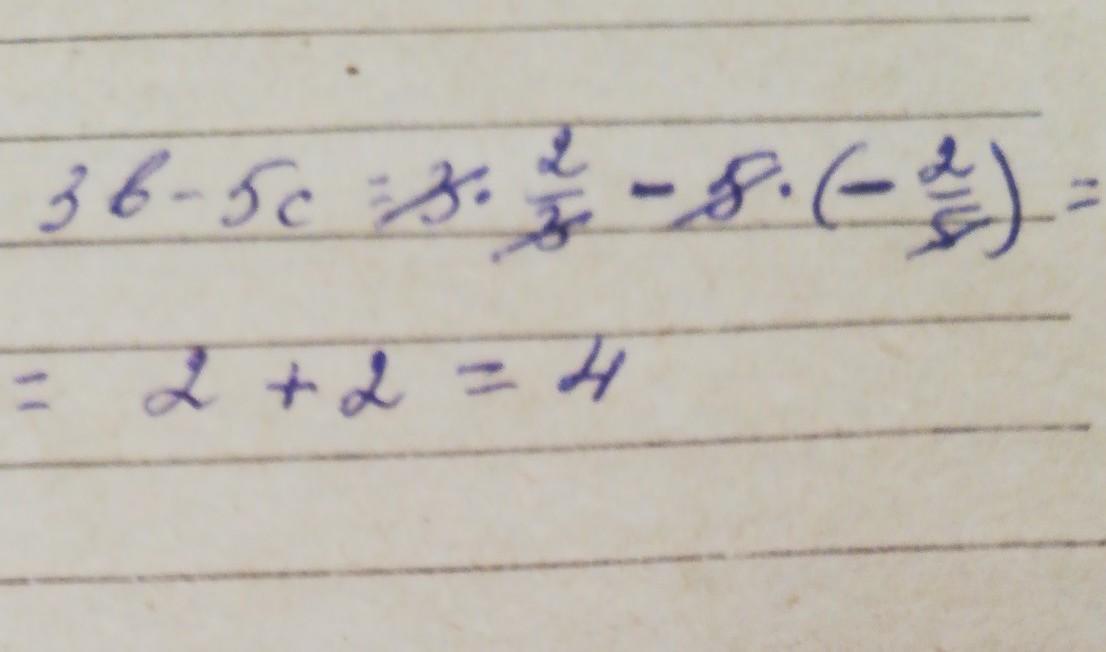 3b - 5c = 3 · 2/3 - 5 · (- 2/5) =
= 2 + 2 = 4